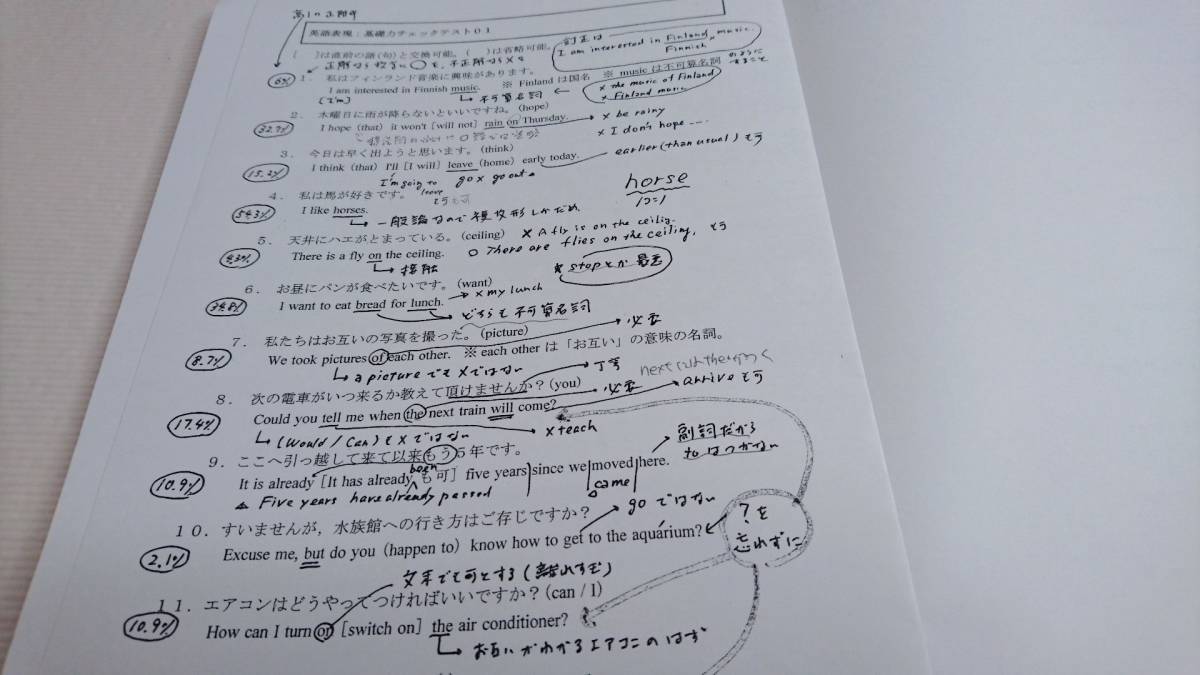 高1の正解率
英語表現：基礎力チェックテスト01
[ ]は直前の語(句)と交換可能。( )は省略可能。
訂正は
I am interested in Finland music.
Finnish
のように
すること
6%
1． 私はフィンランド音楽に興味があります。 ※ Finland は国名 ※ music は不可算名詞
I am interested in Finnish music.
[I'm]
不可算名詞
× the music of Finland
× Finland music
2． 木曜日に雨が降らないといいですね。(hope)
32.7%
I hope (that) it won't [will not] rain on Thursday.
× be rainy
× I don't hope ....
3． 今日は早く出ようと思います。(think)
15.2%
I think (that) I'll [I will] leave (home) early today.
earlier (than usual) も可
I'm going to
leave
も可
go × go out
4． 私は馬が好きです。
horse
54.3%
I like horses.
一般論なので複数形しかだめ
5． 天井にハエがとまっている。(ceiling)
× A fly is on the ceiling.
There is a fly on the ceiling.
○ There are flies on the ceiling. も可
接触
* stop とか 最悪
6． お昼にパンが食べたいです。(want)
I want to eat bread for lunch.
× my lunch
どちらも不可算名詞
7． 私たちはお互いの写真を撮った。(picture)
必要
8.7%
We took pictures of each other. ※ each other は「お互い」の意味の名詞。
a picture でも×ではない
丁寧
8． 次の電車がいつ来るか教えて頂けませんか？(you)
必要
next には the がつく
17.4%
Could you tell me when the next train will come?
arrive も可
(Would / Can) も×ではない
× teach
9． ここへ引っ越して来て以来もう5年です。
副詞だから
to はつかない
10.9%
It is already [It has already been も可] five years since we moved here.
came
▲ Five years have already passed
10． すいませんが，水族館への行き方はご存じですか？
go ではない
2.1%
Excuse me, but do you (happen to) know how to get to the aquarium?
? を
忘れずに
文末でも可とする (離れすぎ)
11． エアコンはどうやってつければいいですか？(can / I)
10.9%
How can I turn on [switch on] the air conditioner?
お互いがわかるエアコンのはず